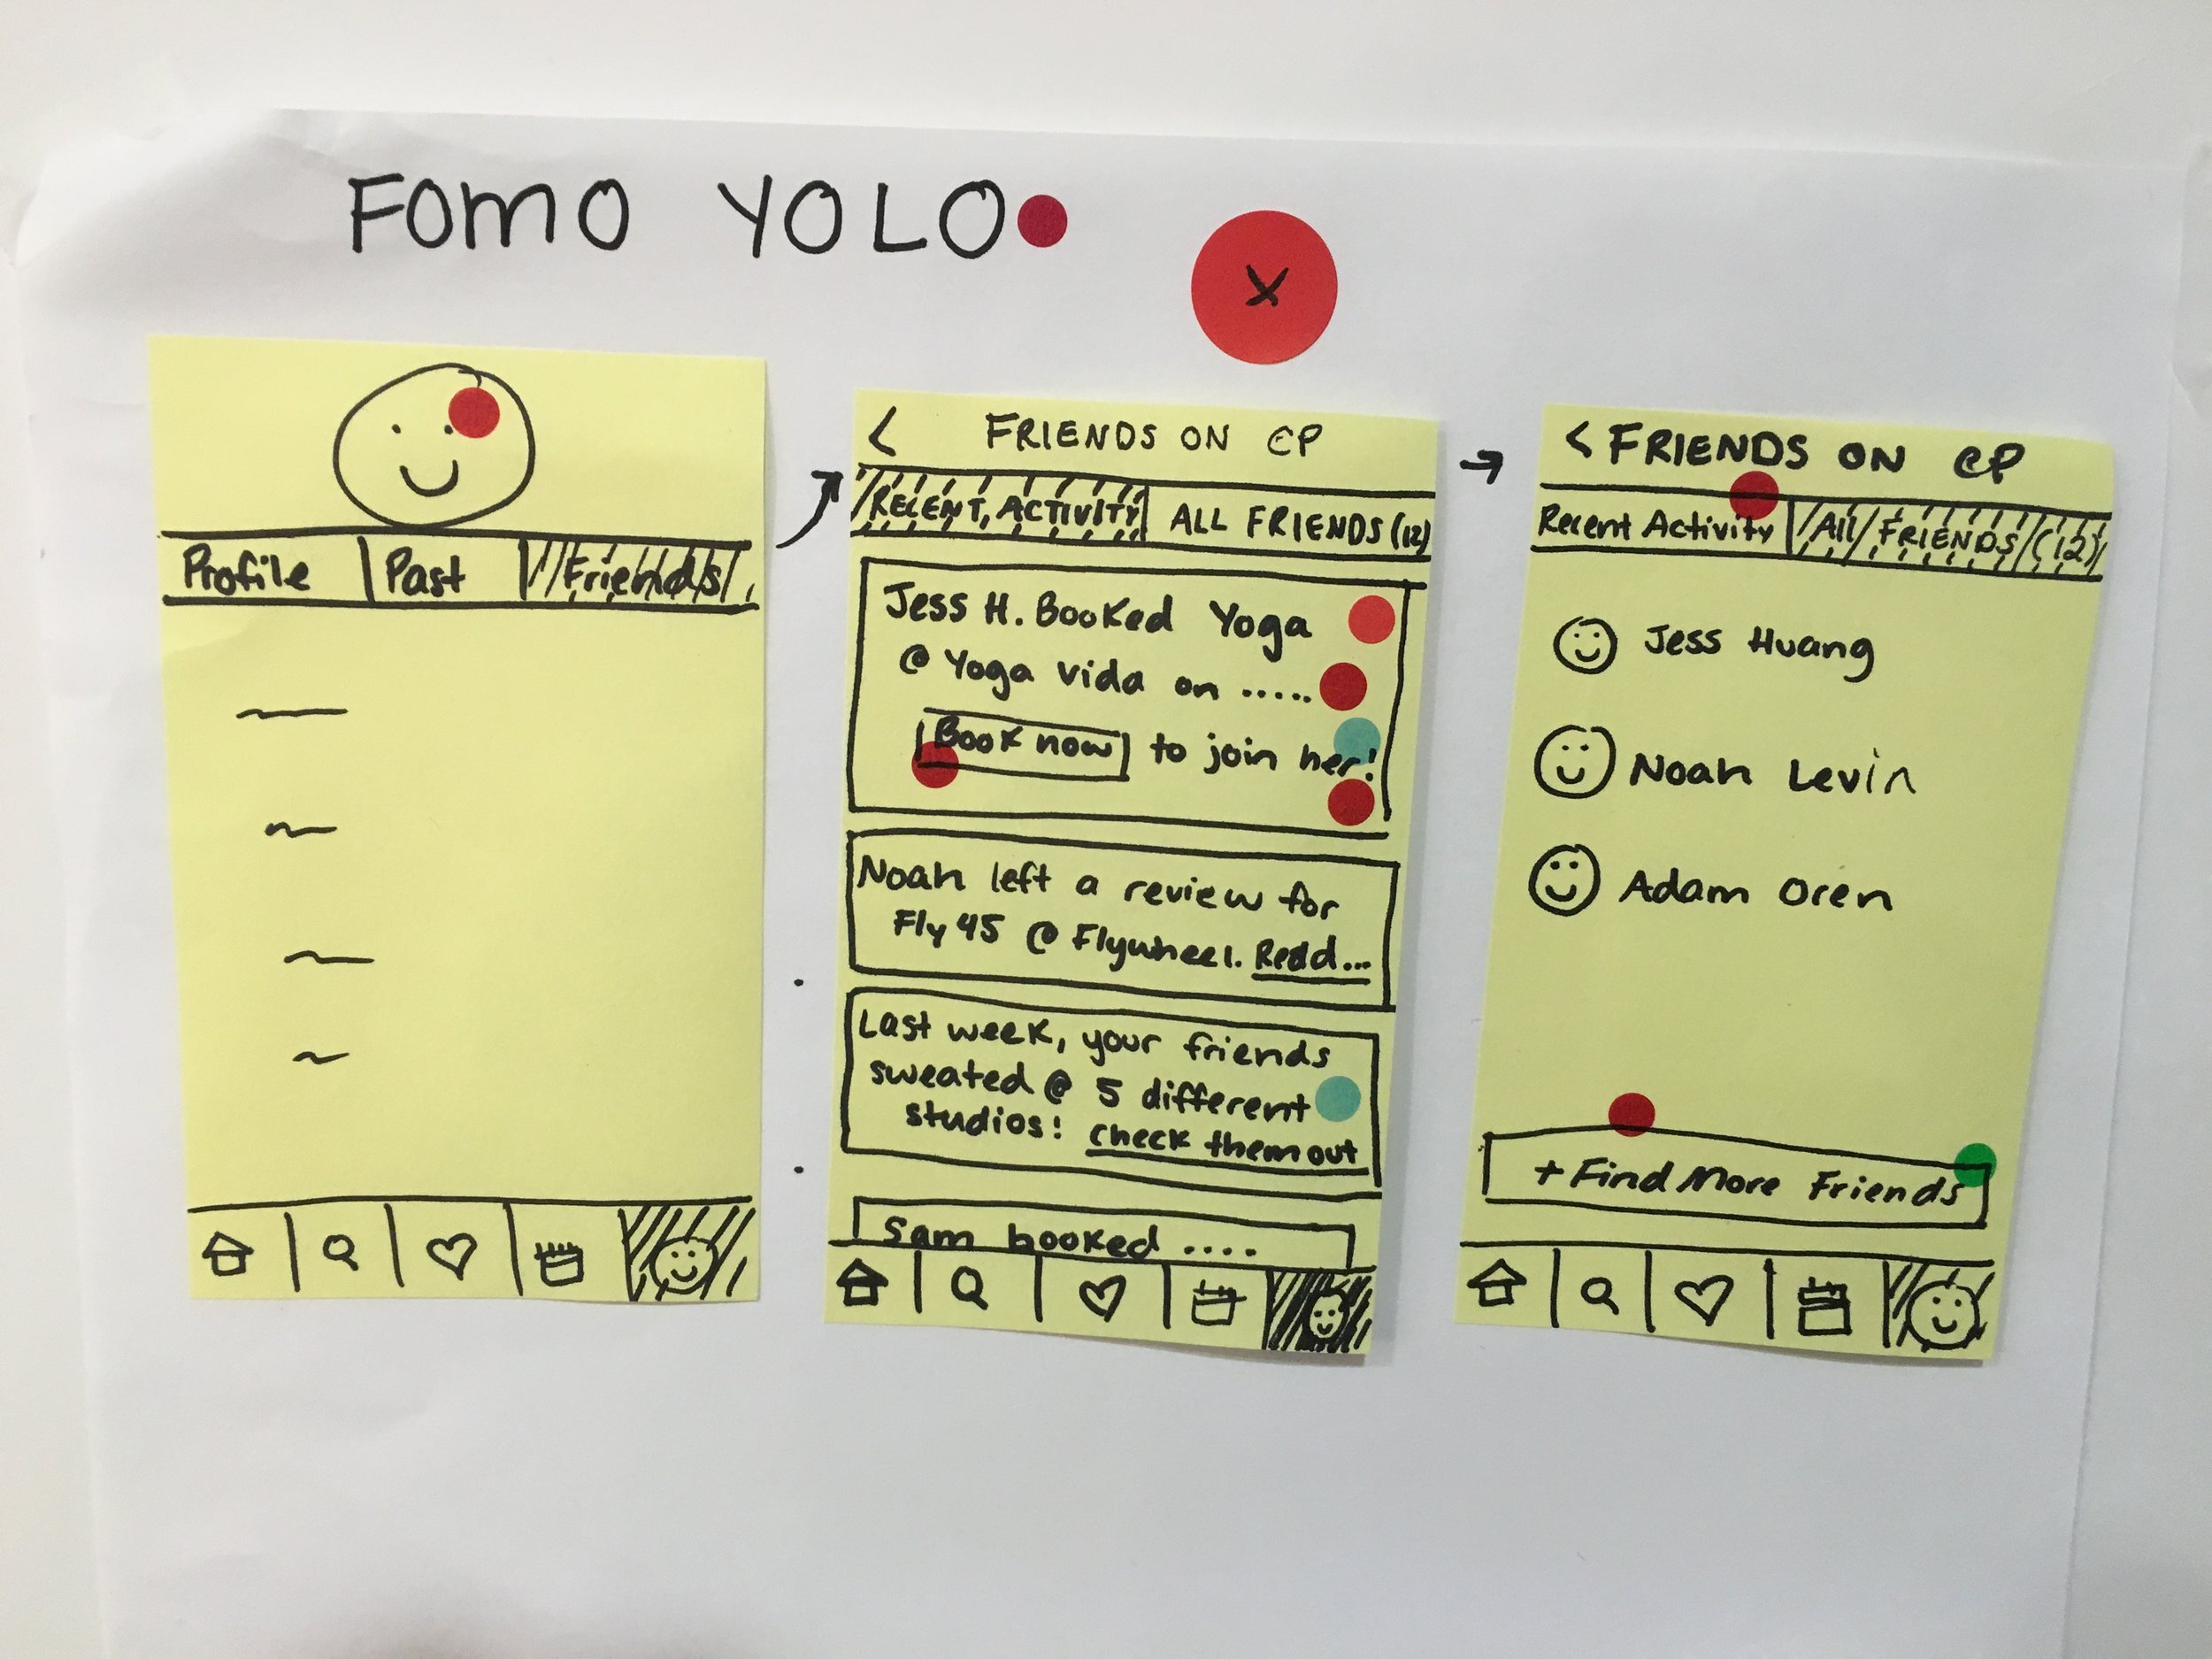 FOMO YOLO
X
Profile | Past | Friends
< FRIENDS ON CP
RECENT ACTIVITY | ALL FRIENDS (12)
Jess H. Booked Yoga
@ Yoga Vida on .....
Book now to join her!
Noah left a review for
Fly 45 @ Flywheel. Read...
Last week, your friends
sweated @ 5 different
studios! check them out
Sam booked ....
< FRIENDS ON CP
Recent Activity | All FRIENDS (12)
Jess Huang
Noah Levin
Adam Oren
+ Find More Friends